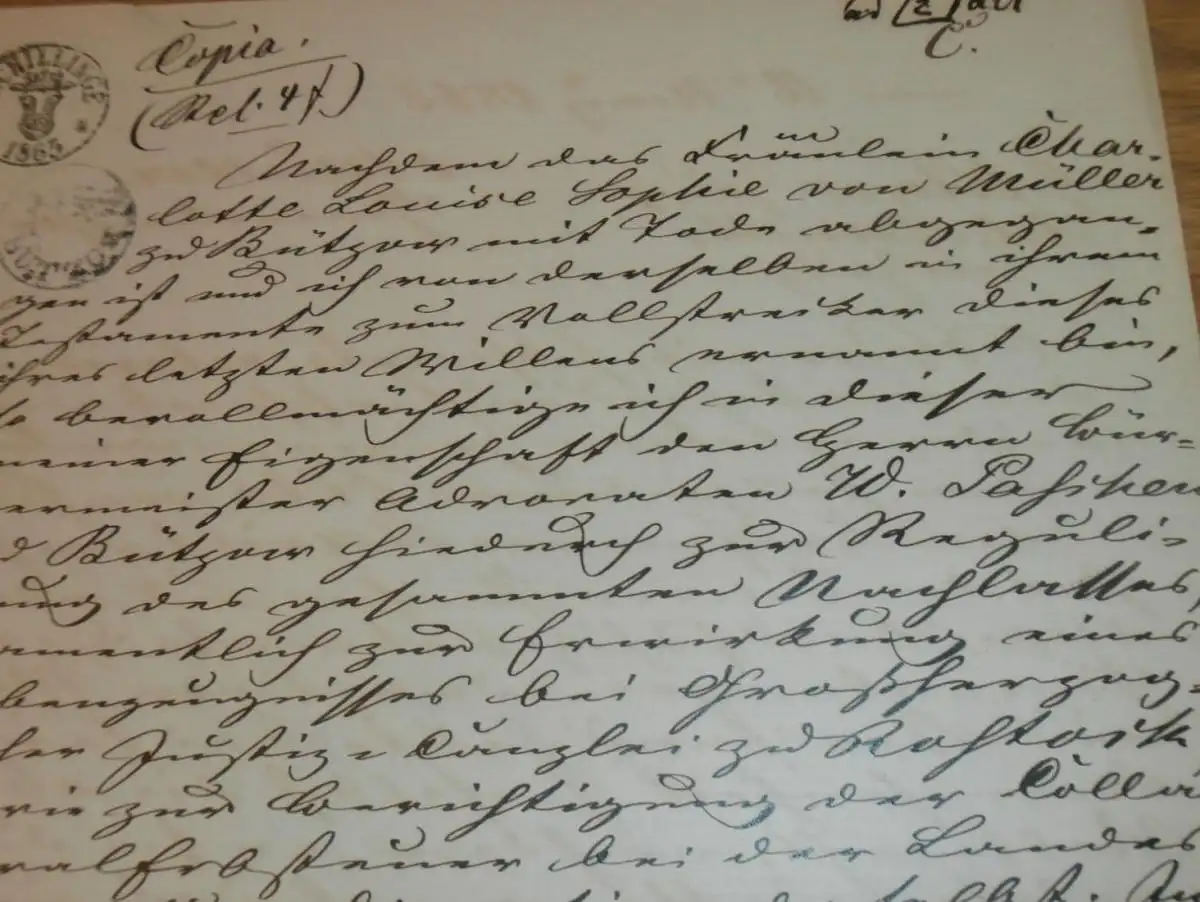 ad [2] all
C.
SCHILLINGE
1863
Copia.
(Rel. 4 f)
Nachdem das Fräulein Char-
lotte Louise Sophie von Müller
zu Bützow mit Tode abgegan-
gen ist und ich von derselben in ihrem
Testamente zum Vollstrecker dieses
ihres letzten Willens ernannt bin,
so bevollmächtige ich in dieser
meiner Eigenschaft den Herrn Bür-
ermeister Advocaten W. Paschen
Bützow hiedurch zur Reguli-
ung des gesammten Nachlasses,
amentlich zur Erwirkung eines
benzeugnisses bei Großherzog-
her Justiz-Canzlei zu Rostock
wie zur Berichtigung der Colla
ralErbsteuer bei der Landes